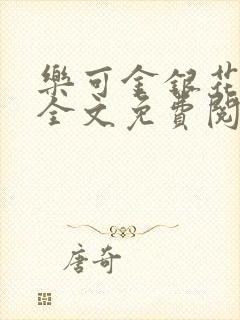 樂可金銀花
全文免費閱
唐奇